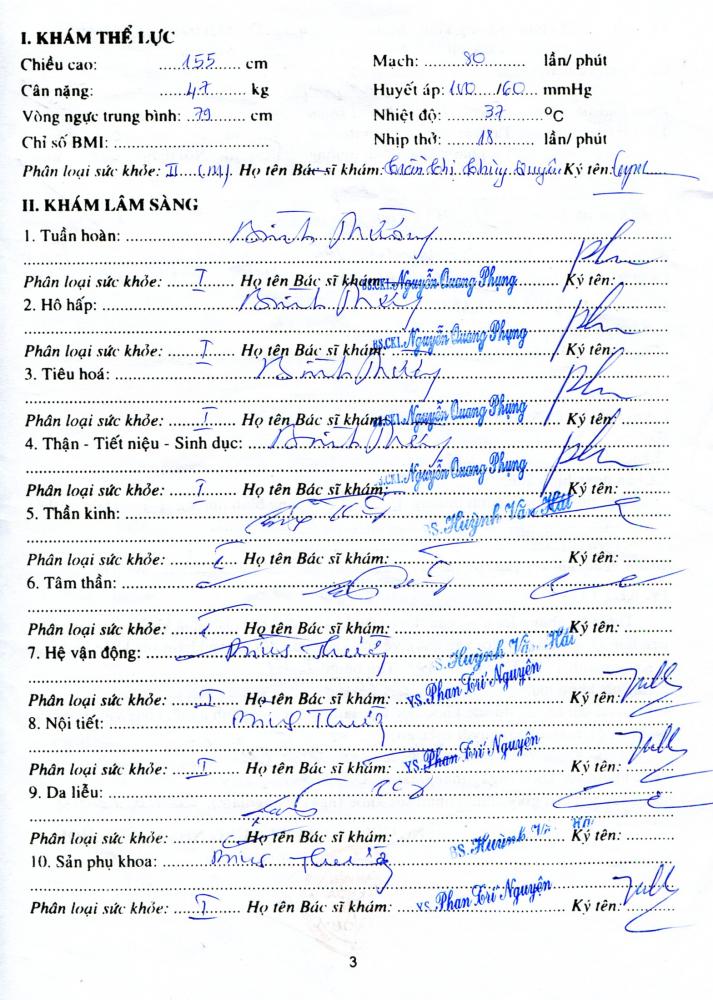 I. KHÁM THỂ LỰC
Chiều cao: ......155...... cm Mạch: ......80...... lần/ phút
Cân nặng: ......47...... kg Huyết áp: 100/60 mmHg
Vòng ngực trung bình: ..79...... cm Nhiệt độ: ......37...... °C
Chỉ số BMI: ............ Nhịp thở: ......18...... lần/ phút
Phân loại sức khỏe: II Họ tên Bác sĩ khám: Trần Thị Thùy Quyên Ký tên:
II. KHÁM LÂM SÀNG
1. Tuần hoàn: Bình Thường
Phân loại sức khỏe: ....I.... Họ tên Bác sĩ khám: BS.CKI. Nguyễn Quang Phụng Ký tên:
2. Hô hấp: Bình Thường
Phân loại sức khỏe: ....I.... Họ tên Bác sĩ khám: BS.CKI. Nguyễn Quang Phụng Ký tên:
3. Tiêu hoá: Bình Thường
Phân loại sức khỏe: ....I.... Họ tên Bác sĩ khám: BS.CKI. Nguyễn Quang Phụng Ký tên:
4. Thận - Tiết niệu - Sinh dục: Bình Thường
Phân loại sức khỏe: ....I.... Họ tên Bác sĩ khám: BS.CKI. Nguyễn Quang Phụng Ký tên:
5. Thần kinh: BS. Huỳnh Văn Hát
Phân loại sức khỏe: Họ tên Bác sĩ khám: Ký tên:
6. Tâm thần:
Phân loại sức khỏe: Họ tên Bác sĩ khám: Ký tên:
7. Hệ vận động: Bình Thường BS. Huỳnh Văn Hát
Phân loại sức khỏe: ....I.... Họ tên Bác sĩ khám: YS. Phan Trí Nguyên Ký tên:
8. Nội tiết: Bình Thường
Phân loại sức khỏe: ....I.... Họ tên Bác sĩ khám: YS. Phan Trí Nguyên Ký tên:
9. Da liễu:
Phân loại sức khỏe: Họ tên Bác sĩ khám: BS. Huỳnh Văn Ký tên:
10. Sản phụ khoa: Bình Thường
Phân loại sức khỏe: ....I.... Họ tên Bác sĩ khám: YS. Phan Trí Nguyên Ký tên:
3